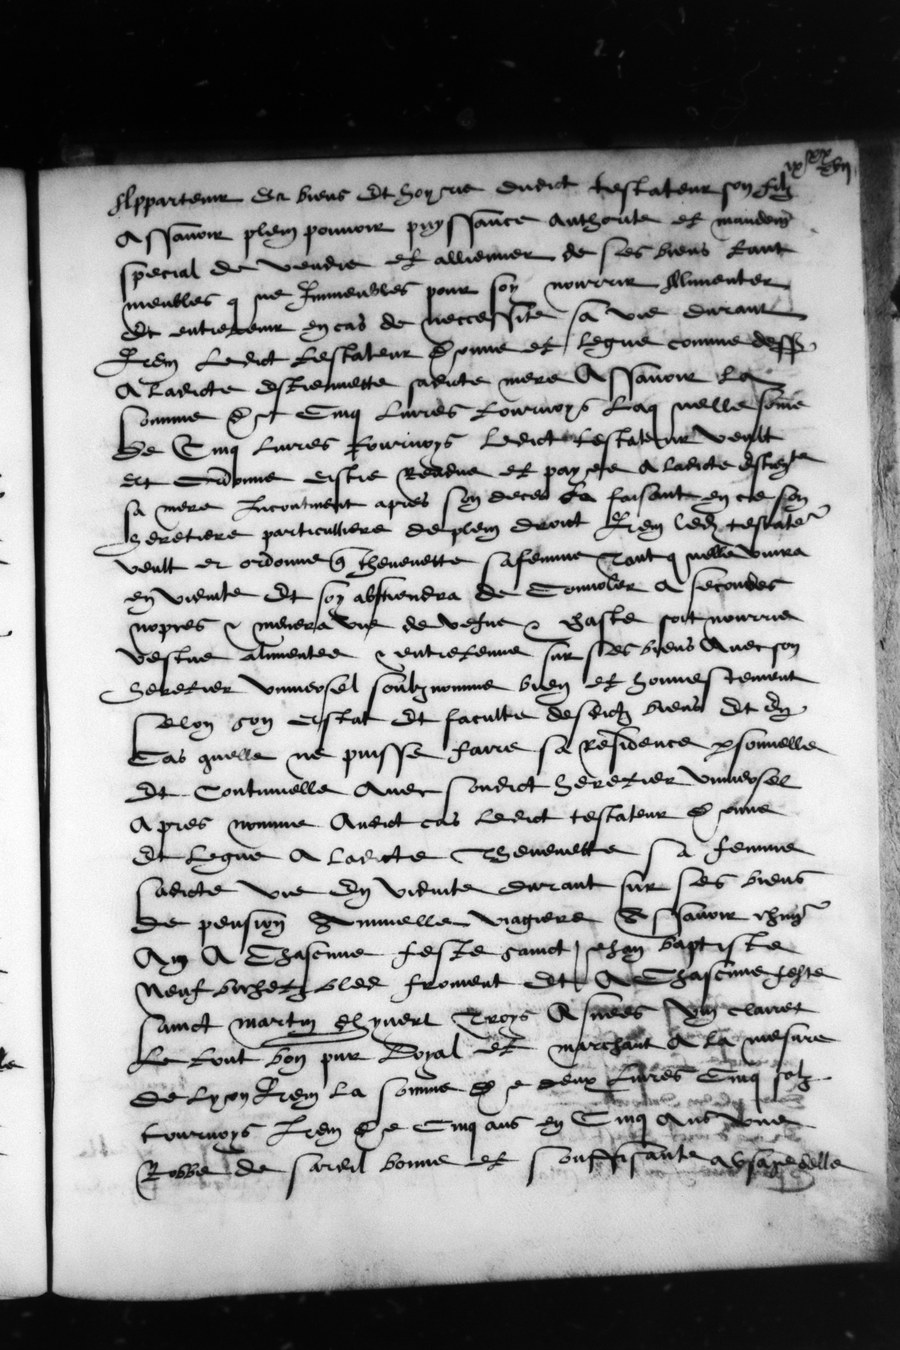 Appartenir des biens et hoyrie dudict testateur son filz
Assavoir plein pouvoir puyssance authorite et mandemt
special de vendre et allienner de ses biens tant
meubles q ne Immeubles pour soy nourrir Alimenter
Et entretenir en cas de neccessite sa vie durant
Item Ledict testateur donne et legue comme dessus
A Ladicte estiennette sadicte mere Assavoir La
somme de Cinq Livres tournoys Laq uelle somme
De Cinq Livres tournoys Ledict testateur veult
Et Ordonne estre Rendue et payee A ladicte
sa mere Incontinent apres son deces La faisant en ce son
heretiere particulliere de plein droict Item led testateur
veult et ordonne q thevenette sa femme Tant q uelle vivra
en viduite Et soy abstiendra de Convoler A secondes
nopces & menera vie de vefve & chaste soit nourrie
vestue alimentee & entretenue sur ses biens Avec son
heretier universel soubz nomme bien et honnestement
selon son estat Et faculte desdictz biens Et En
Cas quelle ne puisse faire sa residence psonnelle
Et Continuelle Avec sondict heretier universel
Apres nomme Audict cas Ledict testateur donne
Et Legue A Ladicte Thevenette sa femme
sadicte vie En viduite durant sur ses biens
de pension Annuelle viagiere Assavoir
An A Chascune feste sainct Jehan baptiste
Neuf bichetz bled froment Et A Chascune feste
sainct martin dhyvert Troys Asnees vin clairet
Le tout bon pur Loyal et marchant A la mesure
De Lyon Item La somme de deux Livres Cinq solz
tournoys Item de Cinq ans en Cinq Ans une
Robbe de sarcil bonne et souffisante a usage delle